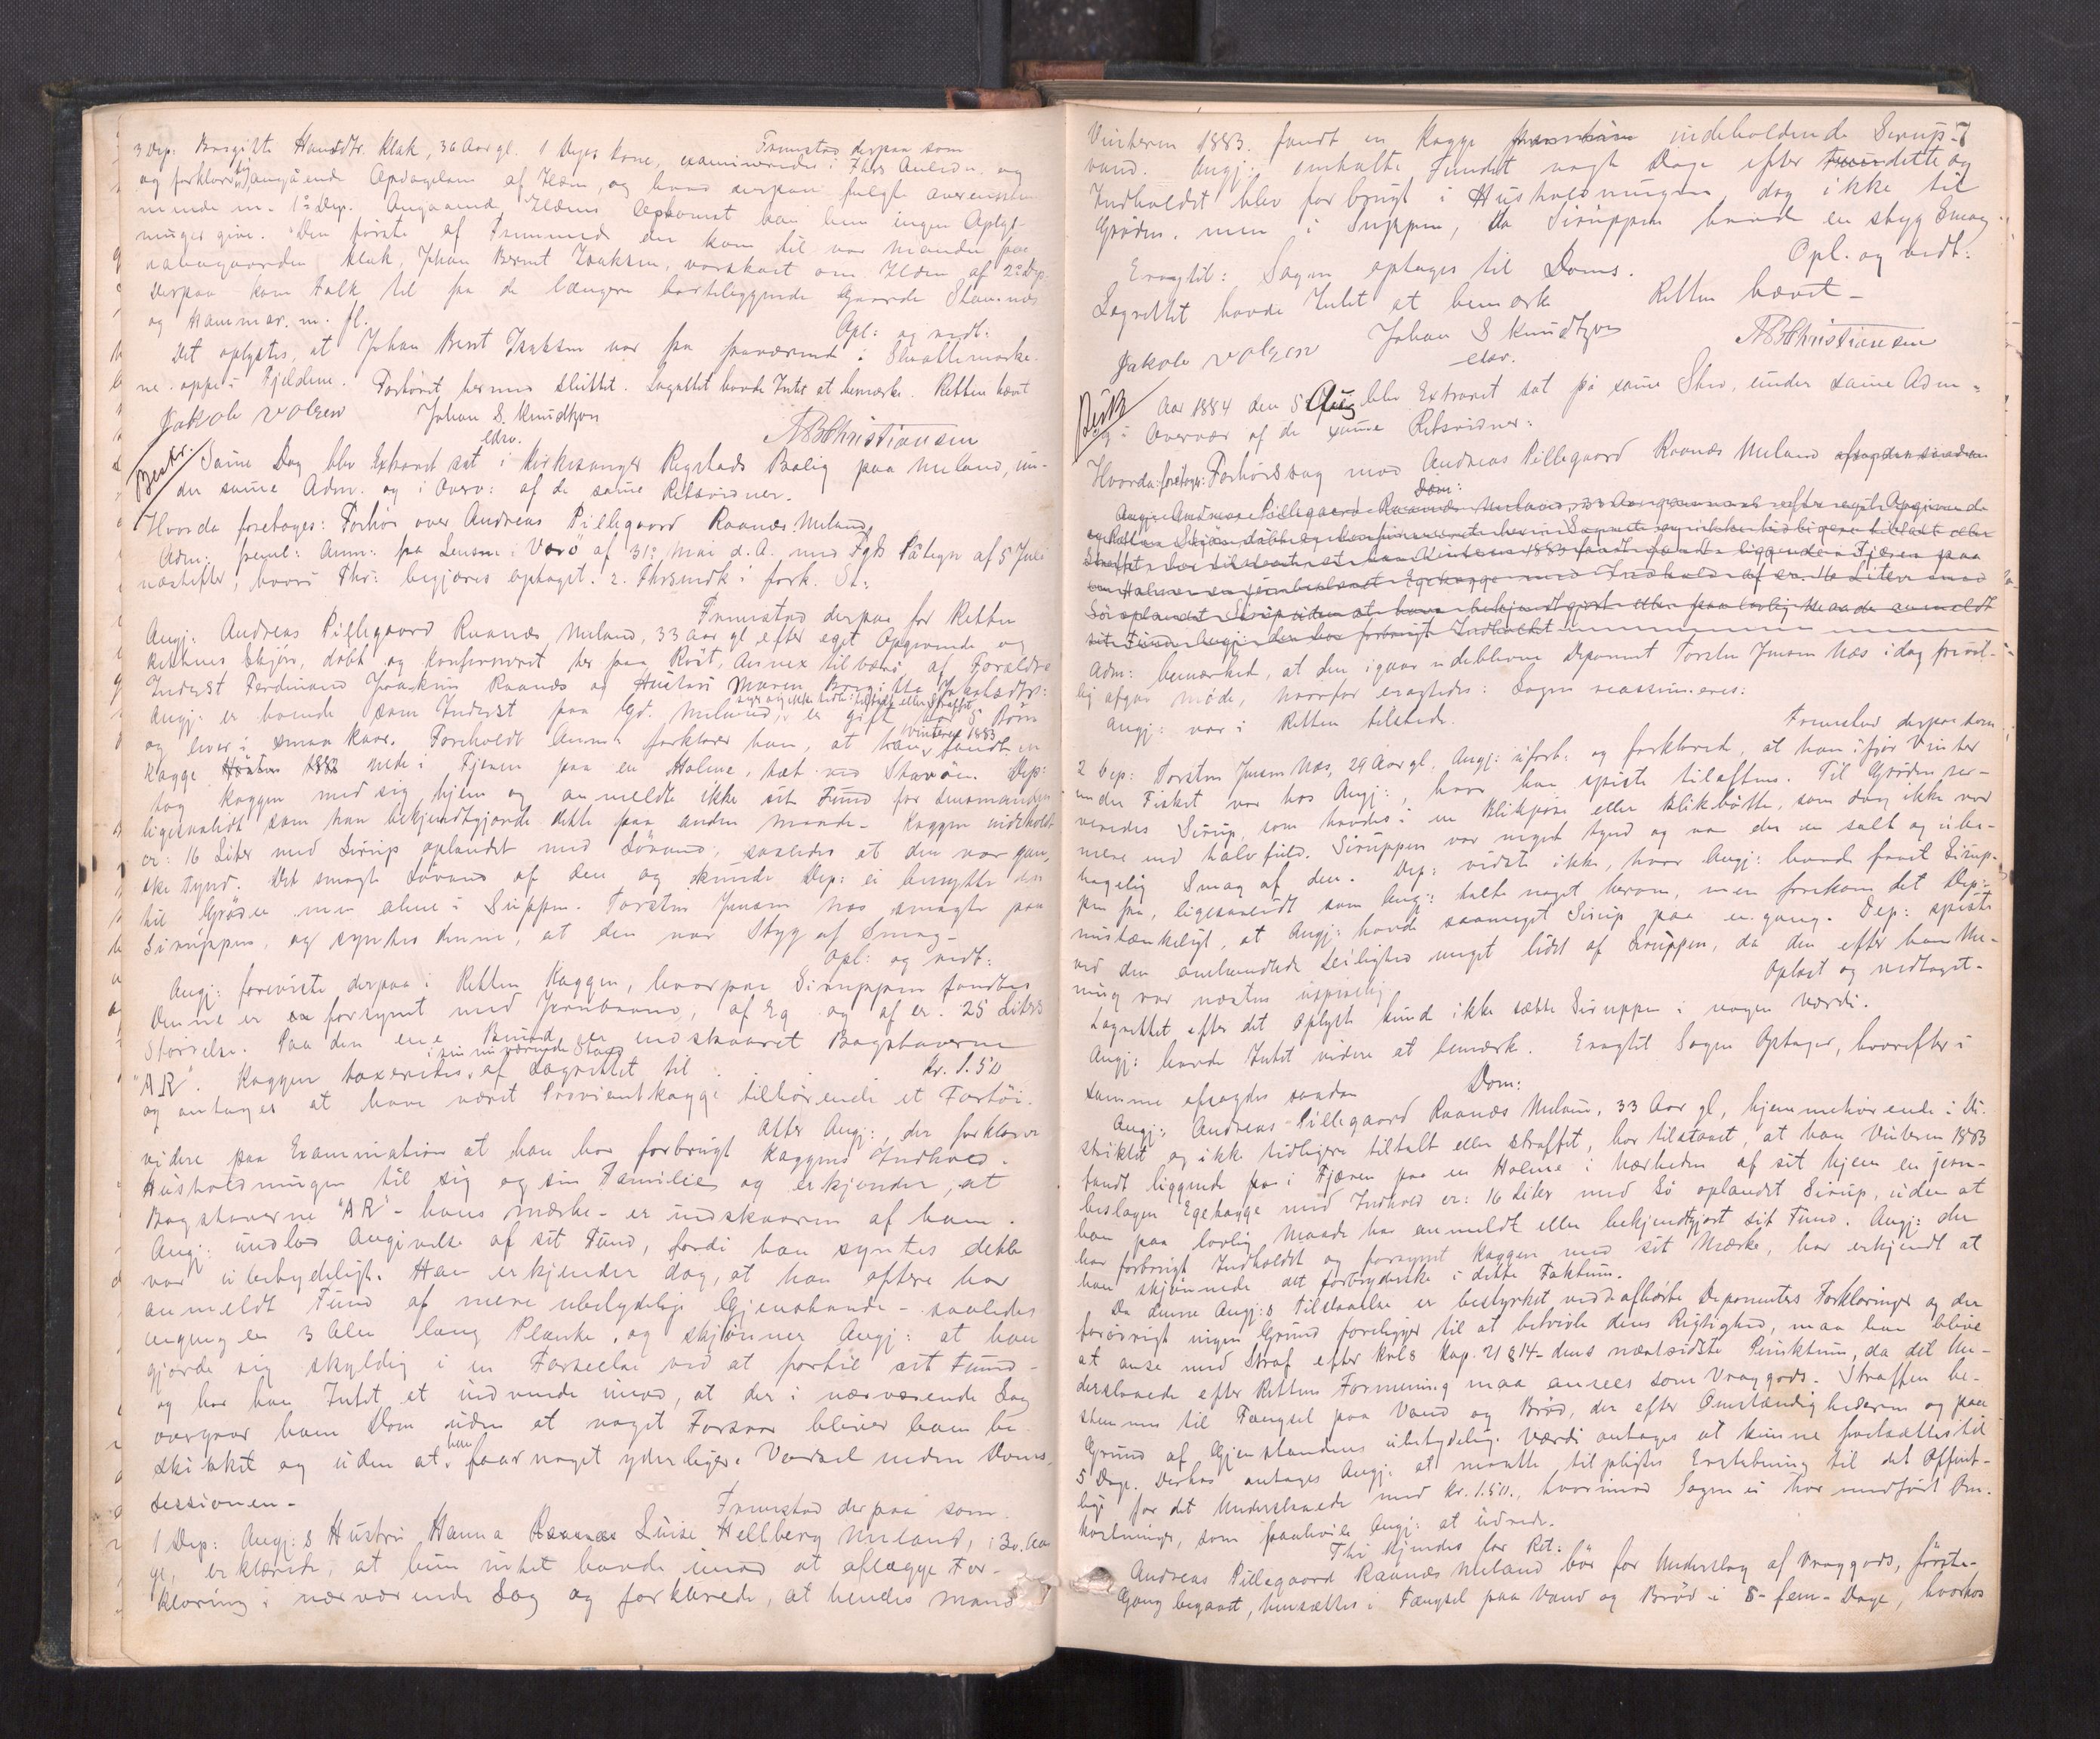 Fremstod derpaa som
3 Dep: Birgitte Hansdtr. Klak, 36 Aar gl. 1 Deps Kone, examineredes i Fhrs Anledn. og
og forklarede angaaende Opdagelsen af Ilden, og hvad derpaa fulgte overensstem-
mende m. 1ste Dep. Angaaende Ildens Opkomst kan hun ingen Oplys-
ninger give. Den første af Fremmede der kom til var Manden paa
Nabogaarden Klak, Johan Bernt Isaksen, varskoet om Ilden af 2den Dep.
Derpaa kom Folk til fra de længere bortliggende Gaarde Stavnæs
og Hammar. m. fl.
Opl: og vedt:
Det oplystes, at Johan Bernt Isaksen var fra fraværende i Slaattemarke-
ne oppe i Fjeldene. Forhøret hermed sluttet. Lagrettet havde Intet at bemærke. Retten hævet
Jakob Volsen Johan S. Knudtzon
edsv.
ABChristiansen
Bestr.
Samme Dag blev Extraret sat i Kirkesanger Regstads Bolig paa Meland, un-
der samme Adm. og i Overv: af de samme Retsvidner.
Hvorda foretoges: Forhør over Andreas Pillegaard Raanæs Meland,
Adm: freml: Anm: fra Lensm: i Værø af 31te Mai d. A. med Fgds Paategn af 5 Juli
næstefter, hvori Fhr: begjæres optaget. 2. Fhrsindk i fork. St:
Fremstod derpaa for Retten
Angj: Andreas Pillegaard Raanæs, Meland, 33 Aar gl efter eget Opgivende og
Rettens Skjøn, døbt og konfirmeret her paa Røst, Annex til Værø af Forældre
Inderst Ferdinand Joakim Raanæs og Hustru Maren Birgitte Jakobsdtr:
Angj: er boende som Inderst paa Gd. Meland, siger sig ikke tidl: tiltalt eller straffet, er gift har 5 Børn
og lever i smaa Kaar. Foreholdt Anm: forklarer han, at han Vinteren 1883 fandt en
Kagge Høsten 1882 nede i Fjæren paa en Holme, tæt ved Stavøen. Dep:
tog Kaggen med sig hjem og anmeldte ikke sit Fund for Lensmanden
ligesaalidt som han bekjendtgjorde dette paa anden Maade. Kaggen indeholdt
cr: 16 Liter med Sirup oplandet med Søvand, saaledes at den var gan-
ske tynd. Det smagte Søvand af den og kunde Dep: ei benytte den
til Grøden men alene i Suppen. Torsten Jensen Næs smagte paa
Siruppen, og syntes denne, at den var Styg af Smag-
Opl: og vedt:
Angj: foreviste derpaa i Retten Kaggen, hvorpaa Siruppen fandtes
Denne er forsynet med Jernbaand, af Eg og af cr. 25 Liters
Størrelse. Paa den ene Bund er indskaaret Bogstaverne
"AR". Kaggen taxeredes i sin nuværende Stand af Lagrettet til . . kr. 1.50
og antages at have været Proviantkagge tilhørende et Fartøi.
Atter Angj: der forklarer
videre paa Examination at han har forbrugt Kaggens Indhold i
Husholdningen til sig og sin Familie og erkjender, at
Bogstaverne "AR" - hans Mærke - er indskaaren af ham.
Angj: undlod Angivelse af sit Fund, fordi han syntes dette
var ubetydeligt. Han erkjender dog, at han oftere har
anmeldt Fund af mere ubetydelige Gjenstande - saaledes
engang en 3 Alen lang Planke, og skjønner Angj: at han
gjorde sig skyldig i en Forseelse ved at fortie sit Fund -
og har han Intet at indvende imod, at der i nærværende Sag
overgaar ham Dom uden at noget Forsvar bliver ham be-
skikket og uden at han faar noget yderligere Varsel inden Doms-
sessionen.-
Fremstod derpaa som
1 Dep: Angj:s Hustru Hanna Raanæs Luise Hellberg Meland, 30 Aar
gl, erklærede, at hun intet havde imod at aflægge For-
klaring i nærværende Sag og forklarede, at hendes Mand
7
Vinteren 1883 fandt en Kagge indeholdende Sirup
vand. Angj: omhalte Fundet nogle Dage efter dette og
Indholdet blev forbrugt i Husholdningen dog ikke til
Grøden, men i Suppen, da Siruppen havde en styg Smag.
Opl. og vedt:
Eragtet: Sagen optages til Doms.
Lagrettet havde Intet at bemærke Retten hævet -
Jakob Volsen Johan S Knudtzon
edsv.
ABChristiansen
Bestr
Aar 1884 den 5 Aug blev Extraret sat paa samme Sted, under samme Adm-
og i Overvær af de samme Retsvidner:
Hvorda: foretoges: Forhørssag mod Andreas Pillegaard Raanæs Meland afsagdes saadan
Dom:
Angj: Andreas Pillegaard Raanæs Meland, 33 Aar gammel efter eget Opgivende
og Rettens Skjøn døbt og konfirmeret her i Sognet og ikke tidligere tiltalt eller
straffet har tilstaaet, at han Vinteren 1883 fandt liggende i Fjæren paa
en Holme en jernbeslaaet Egekagge med Indhold af cr. 16 Liter med
Sø oplandet Sirup uden at have bekjendtgjort eller paa lovlig Maade anmeldt
sit Fund. Angj: der har forbrugt Indholdet
Adm: bemærked, at den igaar udeblevne Deponent Torsten Jensen Næs idag frivil-
lig afgav Møde, hvorfor eragtedes: Sagen reassumeres:
Angj: var i Retten tilstede.
Fremstod derpaa som
2 Dep: Torsten Jensen Næs, 29 Aar gl, Angj: uforb: og forklared, at han ifjor Vinter
under Fisket var hos Angj:, hvor han spiste tilaftens. Til Grøden ser-
veredes Sirup, som havdes i en Blikpøse eller Blikbøtte, som dog ikke var
mere end halv fuld. Siruppen var meget tynd og var der en salt og ube-
hagelig Smag af den. Dep: vidste ikke, hvor Angj: havde faaet Sirup-
pen fra, ligesaalidt som Angj: talte noget herom, men forekom det Dep:
mistænkeligt, at Angj: havde saameget Sirup paa en gang. Dep: spiste
ved den omhandlede Leilighed meget lidet af Siruppen, da den efter hans Me-
ning var næsten uspiselig.
Oplæst og vedtaget-
Lagrettet efter det Oplyste kunde ikke sætte Siruppen i nogen Værdi.
Angj: havde Intet videre at bemærke. Eragtet Sagen Optages, hvorefter i
samme afsagdes saadan Dom:
Angj: Andreas Pillegaard Raanæs Meland, 33 Aar gl, hjemmehørende i Di-
striktet og ikke tidligere tiltalt eller straffet, har tilstaaet, at han Vinteren 1883
fandt liggende i Fjæren paa en Holme i Nærheden af sit Hjem en jern-
beslagen Egekagge med Indhold cr: 16 Liter med Sø oplandet Sirup, uden at
han paa lovlig Maade har anmeldt eller bekjendtgjort sit Fund. Angj: der
har forbrugt Indholdet og forsynet Kaggen med sit Mærke, har erkjendt at
han skjønnede det forbryderske i dette Faktum.
Da denne Angj:s Tilstaaelse er bestyrket ved de afhørte Deponenters Forklaringer og der
forøvrigt ingen Grund foreligger til at betvivle dens Rigtighed, maa han blive
at anse med Straf efter Krls Kap. 21 § 14 - dens næstsidste Punktum, da det Un-
derslaaede efter Rettens Formening maa ansees som Vraggods. Straffen be-
stemmes til Fængsel paa Vand og Brød, der efter Omstændighederne og paa
Grund af Gjenstandens ubetydelige Værdi antages at kunne fastsættes til
5 Dage. Derhos antages Angj: at maatte tilpligtes Erstatning til det Offent-
lige for det Underslaaede med kr. 1.50., hvorimod Sagen ei har medført Om-
kostninger, som paahvile Angj: at udrede.
Thi kjendes for Ret:
Andreas Pillegaard Raanæs Meland bør for Underslag af Vraggods, første-
Gang begaaet, hensættes i Fængsel paa Vand og Brød i 5 - fem - Dage, hvorhos